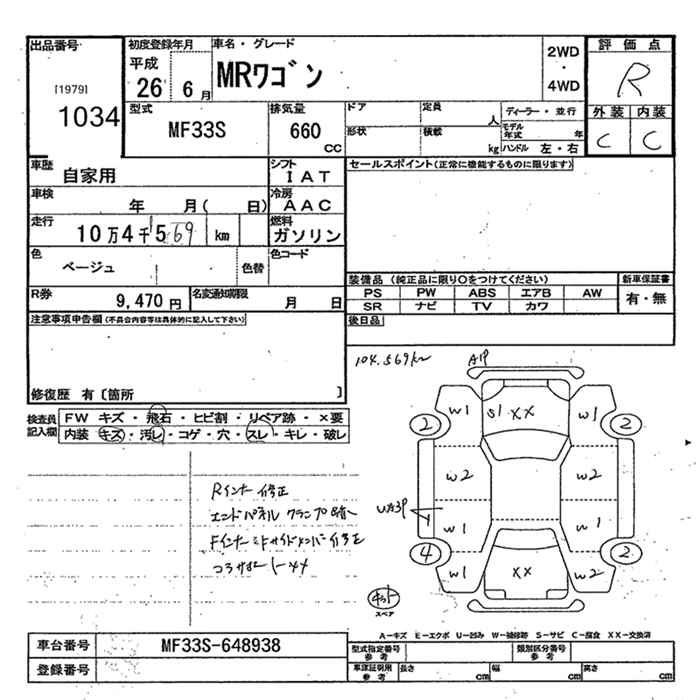 出品番号
[1979]
1034
初度登録年月
平成
26 6月
車名・グレード
MRワゴン
2WD
・
4WD
評価点
R
外装 内装
C C
型式
MF33S
排気量
660
CC
ドア
形状
定員
人
積載
kg
ディーラー・並行
モデル年式 年
ハンドル 左・右
車歴
自家用
シフト
IAT
セールスポイント(正常に機能するものに限ります)
車検
年 月( 日)
冷房
AAC
走行
10万4千569 km
燃料
ガソリン
色
ベージュ
色替
色コード
R券
9,470円
名変通知期限
月 日
装備品 (純正品に限り○をつけてください)
新車保証書
PS PW ABS エアB AW
SR ナビ TV カワ
有・無
後日品
注意事項申告欄(不具合内容等は具体的に記入して下さい)
修復歴 有〔箇所 〕
検査員記入欄
FW キズ・飛石・ヒビ割・リペア跡・×要
内装 キズ・汚レ・コゲ・穴・スレ・キレ・破レ
104.569km
A1P
W1 S1 XX W1
2 2
W2 W2
UA3P
W1 W1
4 2
W1 XX W2
Rインナー修正
エンドパネル クランプ跡
Fインナー
サイドメンバー修正
スペア
A-キズ E-エクボ U-凹み W-補修跡 S-サビ C-腐食 XX-交換済
車台番号
MF33S-648938
登録番号
型式指定番号
参考
類別区分番号
参考
車検証明用
参考
長さ cm
幅 cm
高さ cm